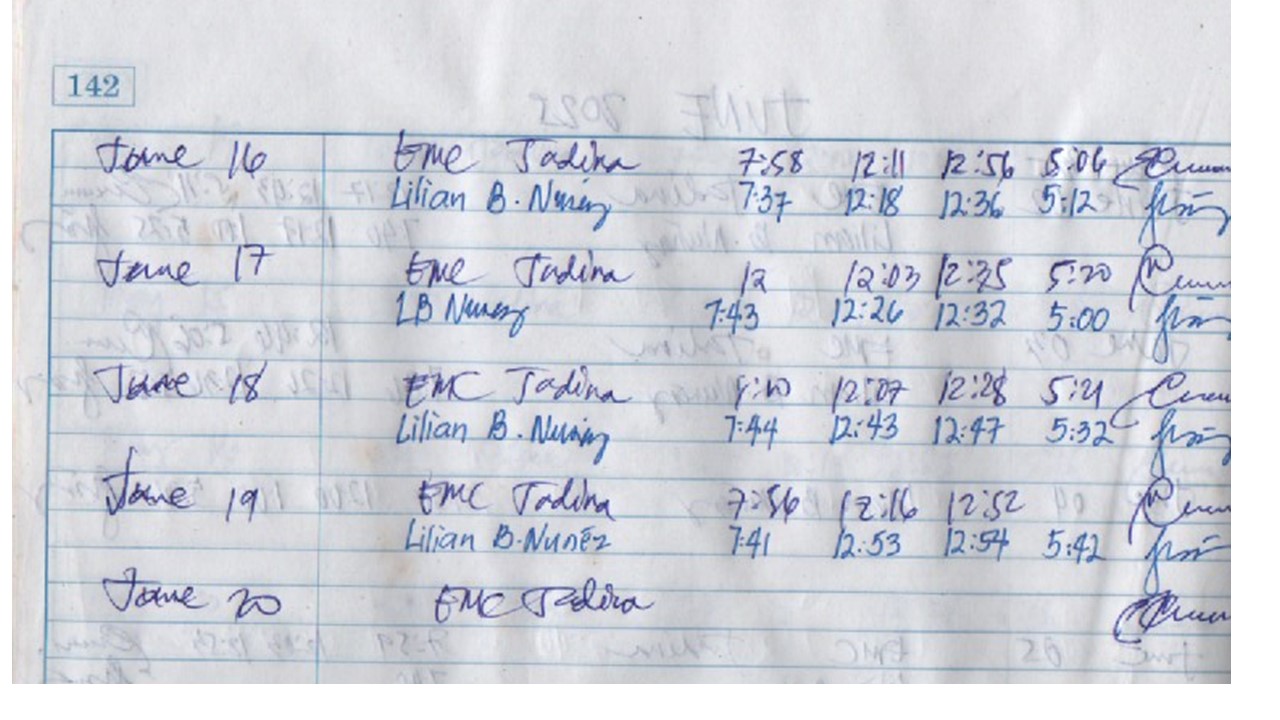 142
June 16 EMC Tadina 7:58 12:11 12:56 5:06
Lilian B. Nunez 7:37 12:18 12:36 5:12
June 17 EMC Tadina 12 12:03 12:35 5:20
LB Nunez 7:43 12:26 12:32 5:00
June 18 EMC Tadina 12:07 12:28 5:21
Lilian B. Nunez 7:44 12:43 12:47 5:32
June 19 EMC Tadina 7:56 12:16 12:52
Lilian B. Nunez 7:41 12:53 12:54 5:42
June 20 EMC Tadina